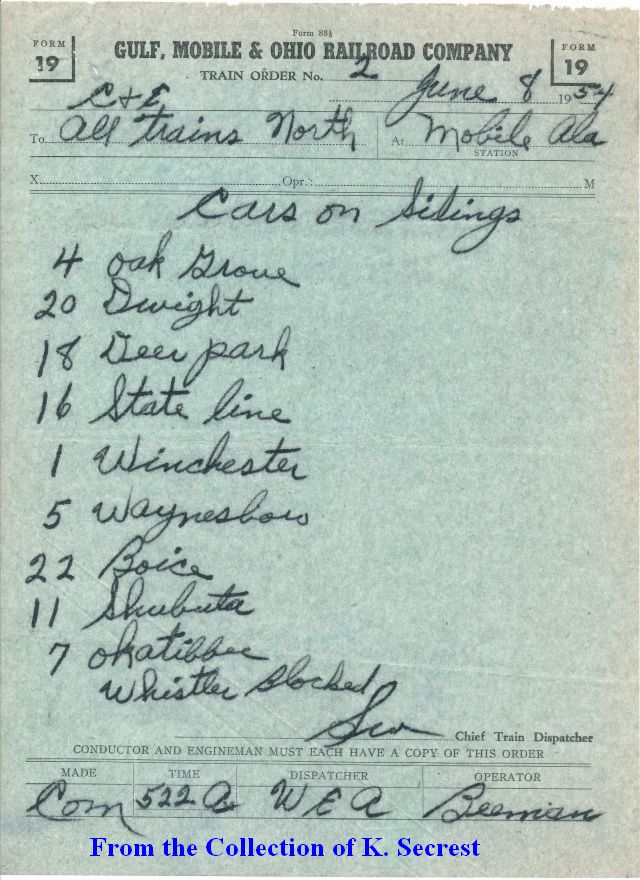 Form 88½
FORM 19
GULF, MOBILE & OHIO RAILROAD COMPANY
FORM 19
TRAIN ORDER No. 2 June 8 1954
C+E
To All trains North At Mobile Ala
STATION
X Opr.: M
Cars on Sidings
4 Oak Grove
20 Dwight
18 Deer park
16 State line
1 Winchester
5 Waynesboro
22 Boice
11 Shubuta
7 Okatibbee
Whistler Blocked
Chief Train Dispatcher
CONDUCTOR AND ENGINEMAN MUST EACH HAVE A COPY OF THIS ORDER
MADE TIME DISPATCHER OPERATOR
Com 522 A W E A Beeman
From the Collection of K. Secrest